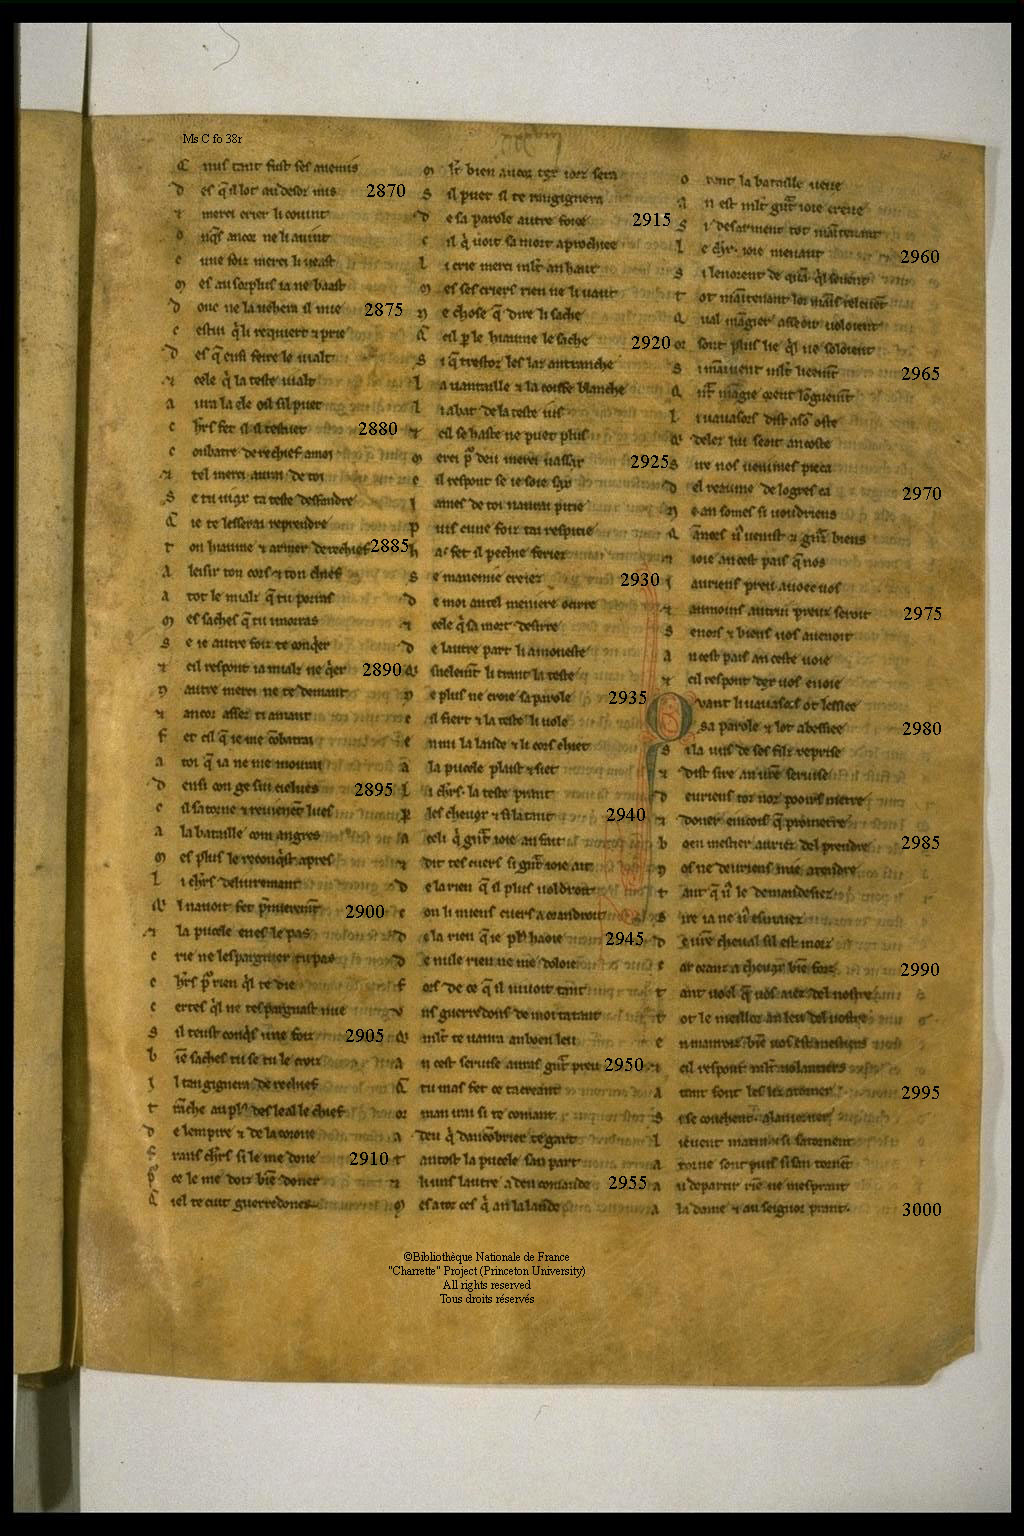 Ms C fo 38r
C nus tant fust ses anemis
D es q̃ il lot au desor mis 2870
⁊ merci crier li couint
O nq̃s ancor ne li auint
C une foiz merci li ueast
M es au sorplus ia ne baast
D onc ne la uehera il mie 2875
C estui q̃ li requiert ⁊ prie
D es q̃ ensi feire le uialt
⁊ cele q̃ la teste uialt
A ura la ele oil sil puet
C hr̃s fet il il testuet 2880
C onbatre derechief amoi
⁊ tel merci aurai de toi
S e tu uiax ta teste desfandre
Q ie te lesserai reprendre
T on hiaume ⁊ armer derechief 2885
A leisir ton cors ⁊ ton chief
A tot le mialz q̃ tu porras
M es saches q̃ tu i morras
S e ie autre foiz te conq̃er
⁊ cil respont ia mialz ne q̃er 2890
N autre merci ne te demant
⁊ ancor assez ti amant
F et cil q̃ ie me cõbatrai
A toi q̃ ia ne me mourai
D ensi con ge sui ci elues 2895
C il satorne ⁊ reuienent lues
A la bataille com angres
M es plus le reconq̃st apres
L i chr̃s deliuremant
Q̃l nauoit fet p̃mieremt̃ 2900
⁊ la pucele enes le pas
C rie ne lespargnier tu pas
C hr̃s por rien q̃l te die
C ertes q̃l ne tespargnast mie
S il teust conq̃s une foiz 2905
B iẽ saches tu se tu le croiz
I l tangignera derechief
T rãche au plus desleal le chief
D e lempire ⁊ de la corone
F rans chr̃s si le me done 2910
P or ce le me doiz biẽ doner
Q iel te cuit guerredoner
M lt̃ bien ancor tex iorz sera
S il puet il te rangignera
D e sa parole autre foiee 2915
C il q̃ uoit sa mort aprochiee
L i crie merci mlt̃ an haut
M es ses criers rien ne li uaut
N e chose q̃ dire li sache
Q cil p̲ le hiaume le sache 2920
S i q̃ trestoz les laz an tranche
L a uantaille ⁊ la coiffe blanche
L i abat de la teste ius
⁊ cil se haste ne puet plus
M erci por deu merci uassax 2925
C il respont se ie soie sax
I ames de toi naurai pitie
P uis cune foiz tai respitie
H a fet il pechie feriez
S e manemie creiez 2930
D e moi an tel meniere ocirre
⁊ cele q̃ sa mort desirre
D e lautre part li amoneste
Q̃ isnelemt̃ li trant la teste
N e plus ne croie sa parole 2935
C il fiert ⁊ la teste li uole
E nmi la lande ⁊ li cors chiet
A la pucele plaist ⁊ siet
L i chr̃s la teste prant
P les cheuox ⁊ si la tant 2940
A celi q̃ grt̃ ioie an fait
⁊ dit tes cuers si grt̃ ioie ait
D e la rien q̃ il plus uoldroit
C on li miens cuers a orandroit
D e la rien q̃ ie pl' haoie 2945
D e nule rien ne me doloie
F ors de ce q̃ il uiuoit tant
V ns guerredons de moi tatant
Q̃ mlt̃ te uanra an boen leu
A n cest seruise auras grt̃ preu 2950
Q tu mas fet ce tacreant
Or man irai si te comant
A deu q̃ dancõbrier te gart
T antost la pucele san part
⁊ li uns lautre a deu comande 2955
M es a toz ces q̃ an la lande
O rent la bataille ueue
A n est mlt̃ grt̃ ioie creue
S i desarment tot mãtenant
L e chr̃ ioie menant 2960
S i lenorent de quã q̃l seuent
T ot mãtenant lor mais releuent
Q ual mãgier asseoir uoloient
Or sont plus lie q̃l ne soloient
S i mãiuent mlt̃ lieemt̃ 2965
Q̃nt̃ mãgie orent longuemt̃
L i uauasors dist a sõ oste
Q̃ delez lui seoit an coste
S ire nos uenimes pieca
D el reaume de logres ca 2970
N e an somes si uoudriens
Q ãnors ũ uenist ⁊ grãz biens
⁊ ioie an cest pais q̃ nos
I auriens preu auoec uos
⁊ au mains autrui preuz seroit 2975
S enors ⁊ biens uos auenoit
A n cest pais an ceste uoie
⁊ cil respont dex uos en oie
Q vant li uauasors ot lessiee
sa parole ⁊ lot abessiee 2980
S i la uns de ses filz reprise
⁊ dist sire an ur̃e seruise
D euriens toz noz pooirs metre
⁊ doner eincois q̃ prometre
B oen mestier auriez del prendre 2985
N os ne deuriens mie atendre
T ant q̃ ũ le demandesiez
S ire ia ne ũ esmaiez
D e ur̃e cheual sil est morz
C ar ceanz a cheuax biẽ forz 2990
T ant uoel q̃ uos aiez del nostre
T ot le meillor an leu del uostre
E n manroiz biẽ uos est mestiers
⁊ cil respont mlt̃ uolantiers
A tant font les liz atorner 2995
S i se couchent alaiorner
L ieuent matin ⁊ si satornent
A torne sont puis si san tornẽt
A u departir riẽ ne mesprant
A la dame ⁊ au seignor prant. 3000
©Bibliothèque Nationale de France
"Charrette" Project (Princeton University)
All rights reserved
Tous droits réservés